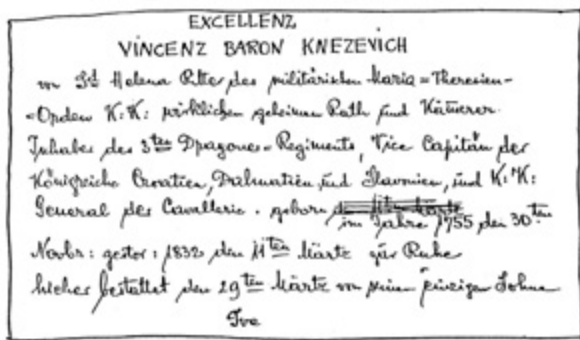 EXCELLENZ
VINCENZ BARON KNEZEVICH
von St Helena Ritter des militärischen Maria=Theresien-
=Orden K:K: wirklichen geheimen Rath und Kämerer.
Inhaber des 3ten Dragoner=Regiments, Vice Capitän der
Königreiche Croatien, Dalmatien und Slavonien, und K:K:
General der Cavallerie. geboren im Jahre 1755 den 30ten
Novbr: gestor: 1832 den 11ten März zur Ruhe
hieher bestattet den 29ten März von seinen einzigen Sohne
Ivo